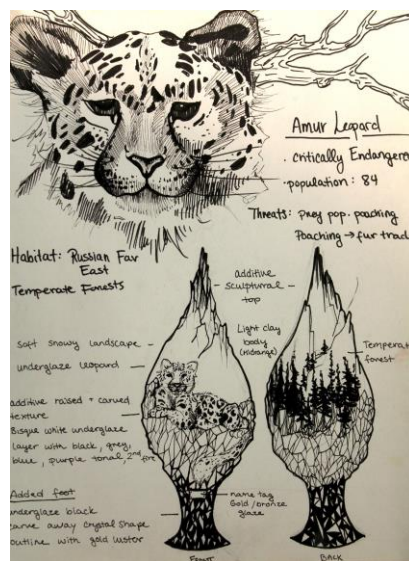 Amur Leopard
· critically Endangere
· population: 84
Threats: Prey pop. poaching
Poaching → fur trad
Habitat: Russian Far
East
Temperate Forests
additive
sculptural
top
Light clay
body
(midrange)
soft snowy landscape
underglaze leopard
Temperat
forest
additive raised + carved
texture
Bisque white underglaze
layer with black, grey,
blue, purple tonal, 2nd fire
Added feet
underglaze black
carve away crystal shape
outline with gold luster
name tag
Gold/bronze
glaze
Front
Back